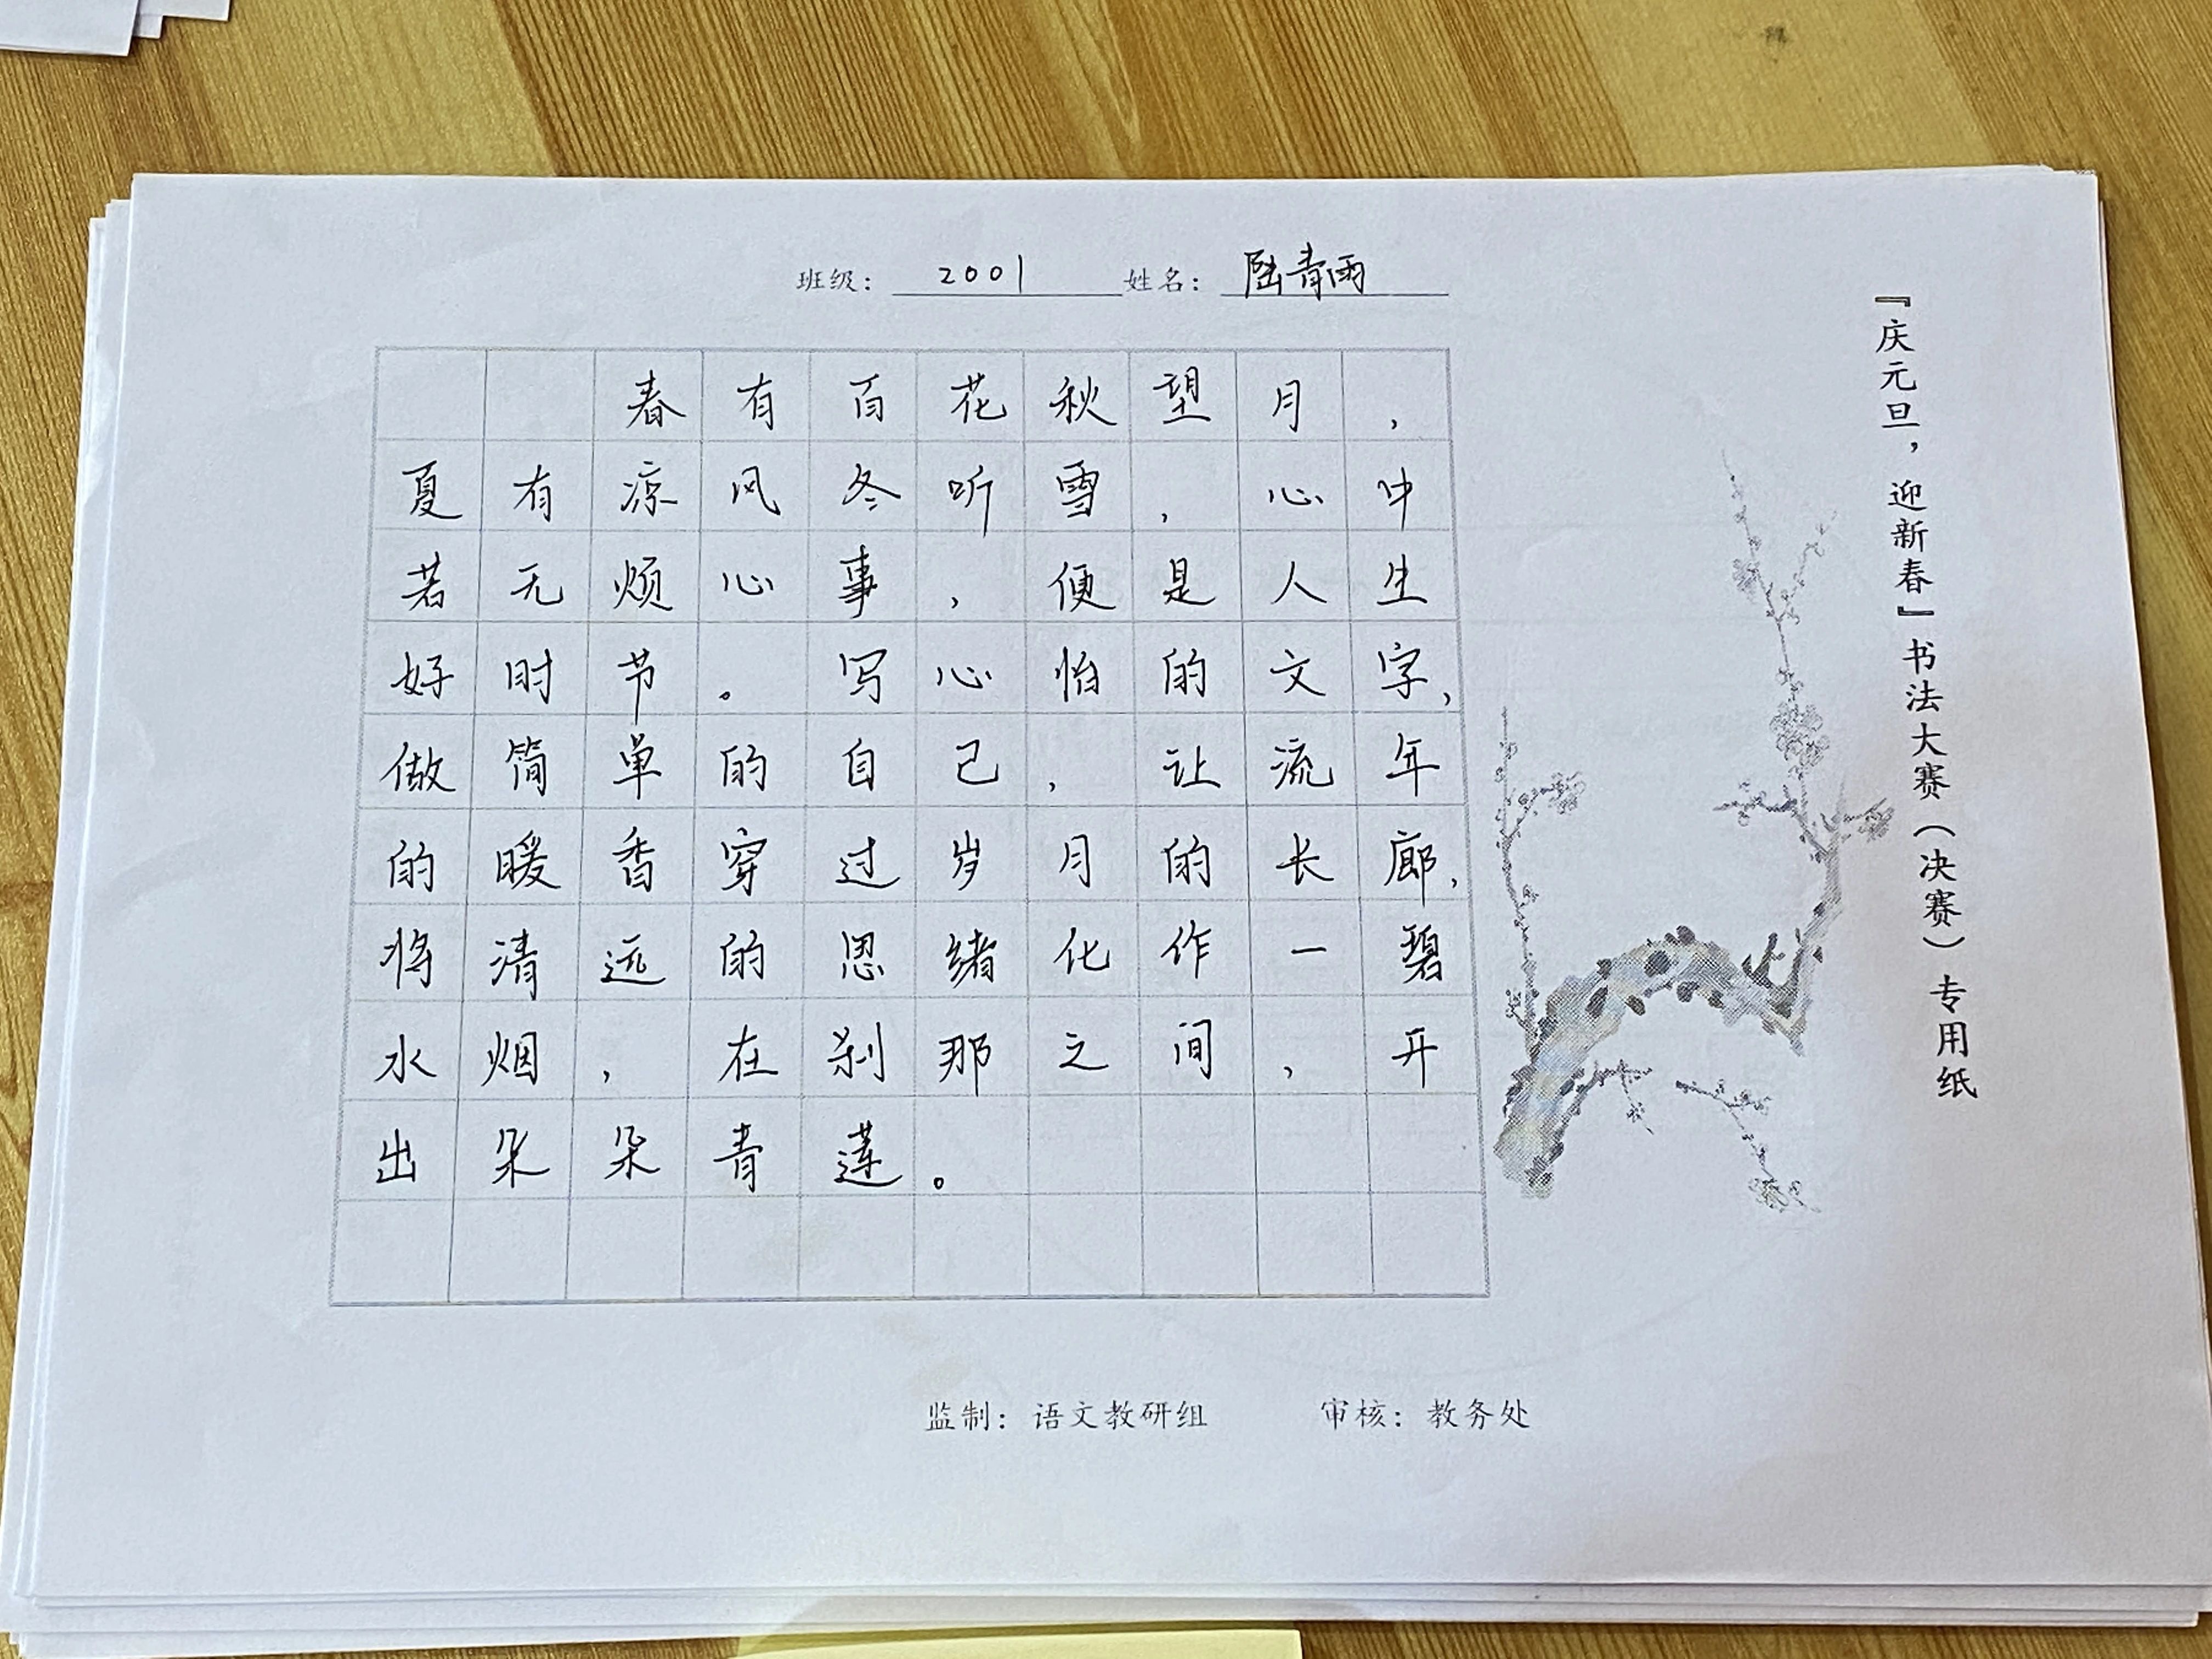 班级：2001 姓名：陆青雨
春有百花秋望月，
夏有凉风冬听雪，心中
若无烦心事，便是人生
好时节。写心怡的文字，
做简单的自己，让流年
的暖香穿过岁月的长廊，
将清远的思绪化作一碧
水烟，在刹那之间，开
出朵朵青莲。
『庆元旦，迎新春』书法大赛（决赛）专用纸
监制：语文教研组 审核：教务处